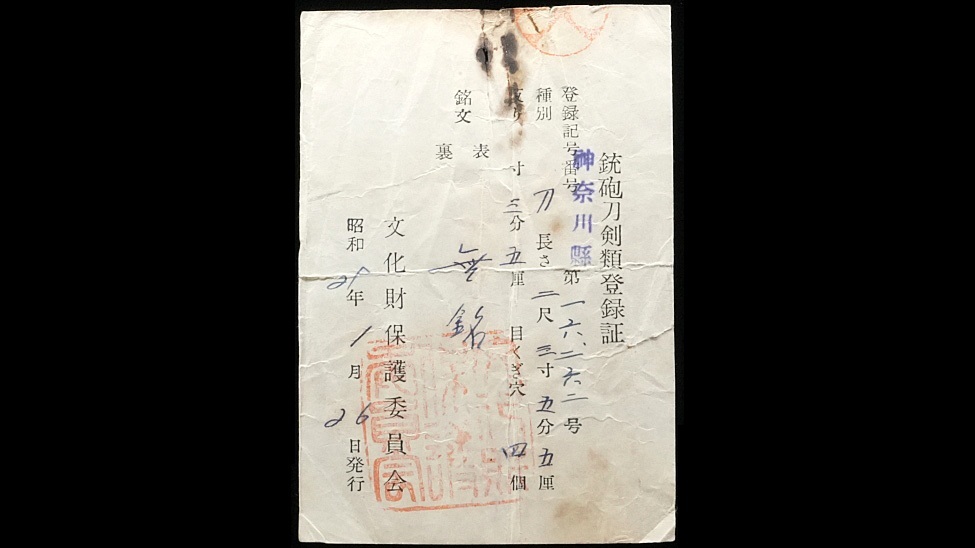 銃砲刀剣類登録証
登録記号番号 神奈川縣 第一六、二六二号
種別 刀 長さ 二尺三寸五分五厘
反り 寸三分五厘 目くぎ穴 四個
銘文 表 無銘
裏
文化財保護委員会
昭和 年1月26日発行